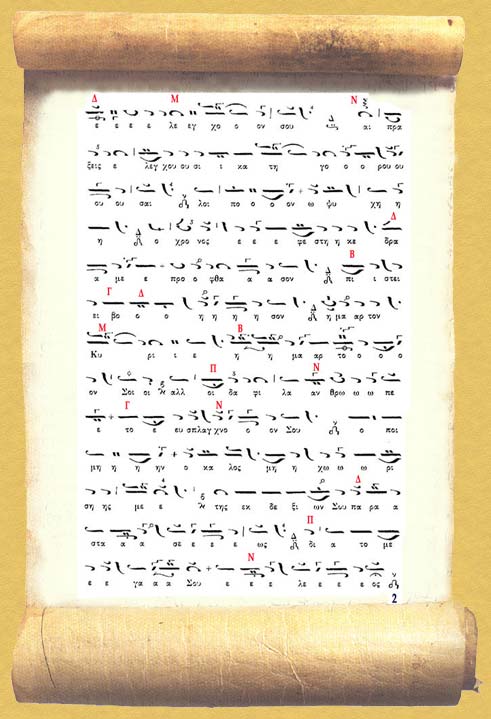 Δ Μ Ν
ε ε ε ε λε εγ χο ο ον σου αι πρα
ξεις ε λεγ χου ου σι ι κα τη γο ο ο ρου ου
ου ου σαι λοι πο ο ον ω ψυ χη η
Δ
η ο χρο νος ε ε ε φε στη η κε δρα
Β
α με ε προ ο φθα α α σον πι ι στει
Γ Δ
ει βο ο ο η η η η σον η μα αρ τον
Μ Β
Κυ ρι ι ε η η μα αρ το ο ο ο
Π Ν
ον Σοι οι αλλ οι δα φι λα αν θρω ω ω πε
Γ Ν
ε το ε ευ σπλαγ χνο ο ον Σου ο ποι
μη η η ην ο κα λος μη η χω ω ω ρι
Δ
ση ης με ε της εκ δε ξι ων Σου πα ρα α
Π
στα α α σε ε ε ε ως δι α το με
Ν
ε ε γα α α Σου ε ε ε λε ε ε ε ος
2